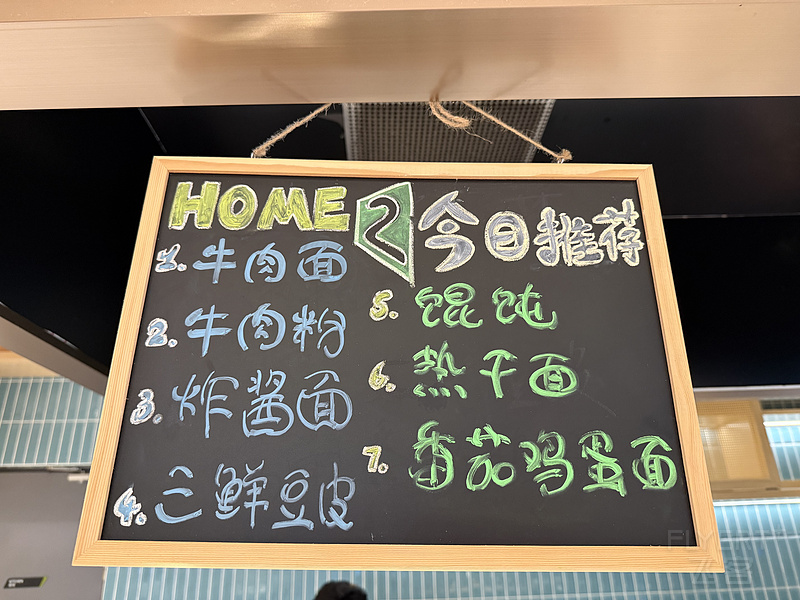 HOME 2 今日推荐
1. 牛肉面
2. 牛肉粉
3. 炸酱面
4. 三鲜豆皮
5. 馄饨
6. 热干面
7. 番茄鸡蛋面